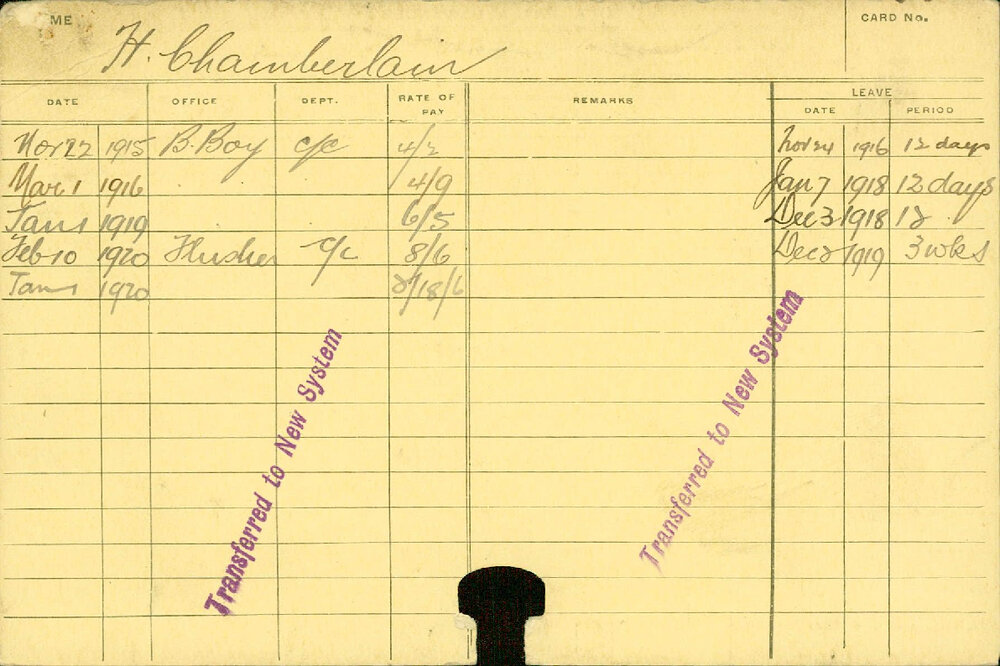 ME
H. Chamberlain
CARD No.
DATE OFFICE DEPT. RATE OF PAY REMARKS LEAVE
DATE PERIOD
Nov 22 1915 B. Boy c/c 4/2 Nov 24 1916 12 days
Mar 1 1916 4/9 Jan 7 1918 12 days
Jan 1 1919 6/5 Dec 3 1918 12
Feb 10 1920 Flusher c/c 8/6 Dec 2 1919 3 wks
Jan 1 1920 /18/6
Transferred to New System
Transferred to New System